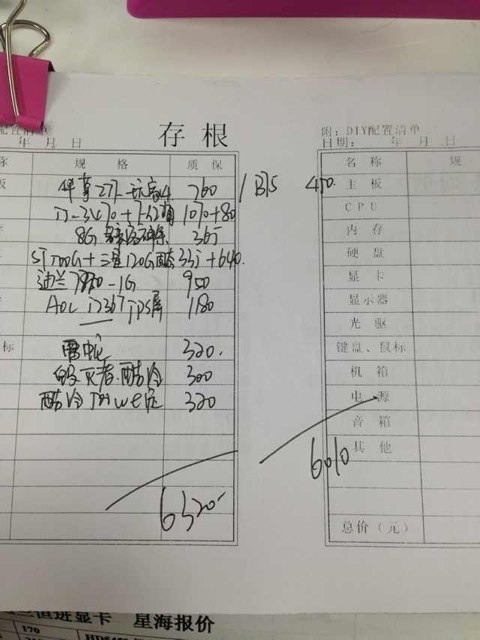 配置清单
年 月 日
存根
附：DIY配置清单
日期： 年 月 日
称 规格 质保
名称 规
板 华享Z77- 760 / B75 470. 主板
I7-3470+ 1070+80 CPU
8G 365 内存
ST 500G+三星120G 335+640. 硬盘
迪兰7850-1G 950 显卡
AOC I2367 IPS屏 1180 显示器
光驱
标 雷蛇 320. 键盘、鼠标
毁灭者.酷冷 300 机箱
酷冷 320 电源
音箱
6010 其他
6320-
总价（元）
显卡 星海报价
170